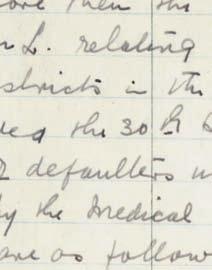 ore then the
L. relating
stricts in the
ded the 30th
defaulters
by the Medical
are as follow